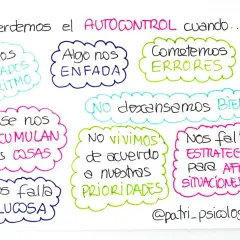 perdemos el AUTOCONTROL cuando...
Algo nos
ENFADA
Cometemos
ERRORES
NO descansamos BIEN
se nos
ACUMULAN
COSAS
NO VIVIMOS
de acuerdo
a nuestras
PRIORIDADES
Nos falta
ESTRATEG
para
SITUACIONES
falla
GLUCOSA
@patri_psicolog